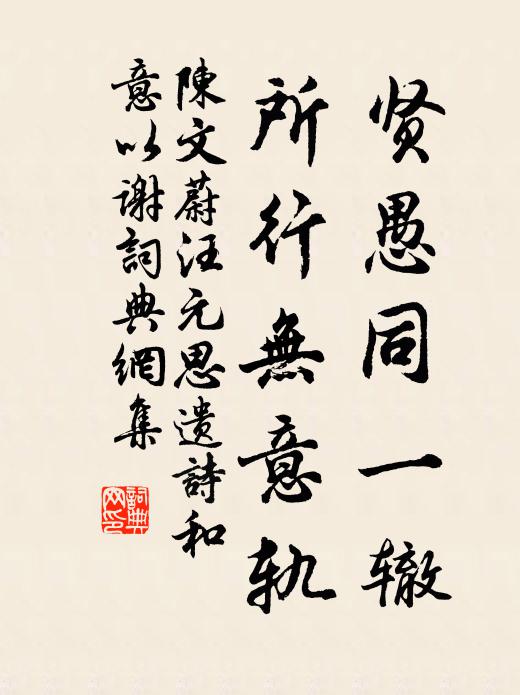 贤愚同一辙
所行無意轨
陳文蔚汪元思遗詩和
意以谢詞典網集
詞典
网印